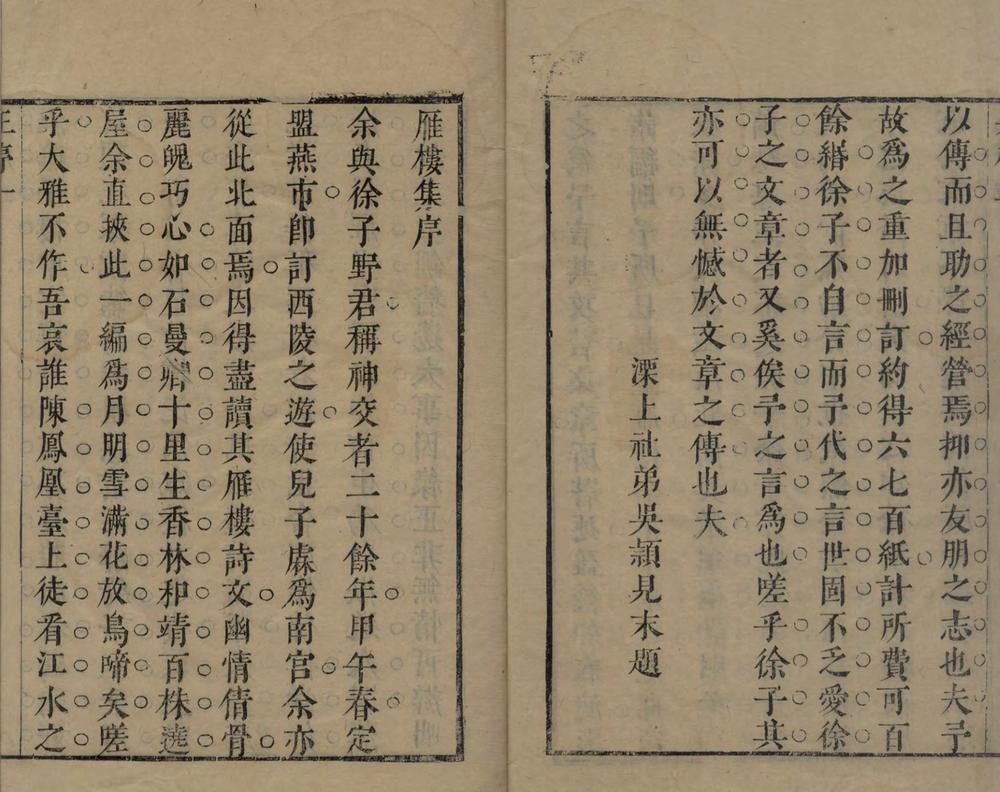 以傳而且助之經營焉抑亦友朋之志也夫予
故爲之重加刪訂約得六七百紙計所費可百
餘緡徐子不自言而予代之言世固不乏愛徐
子之文章者又奚俟予之言爲也嗟乎徐子其
亦可以無憾於文章之傳也夫
溧上社弟吳頴見末題
雁樓集序
余與徐子野君稱神交者二十餘年甲午春定
盟燕市卽訂西陵之遊使兒子㡖爲南宮余亦
從此北面焉因得盡讀其雁樓詩文幽情倩骨
麗魄巧心如石曼卿十里生香林和靖百株遶
屋余直挾此一編爲月明雪滿花放鳥啼矣嗟
乎大雅不作吾哀誰陳鳳凰臺上徒看江水之